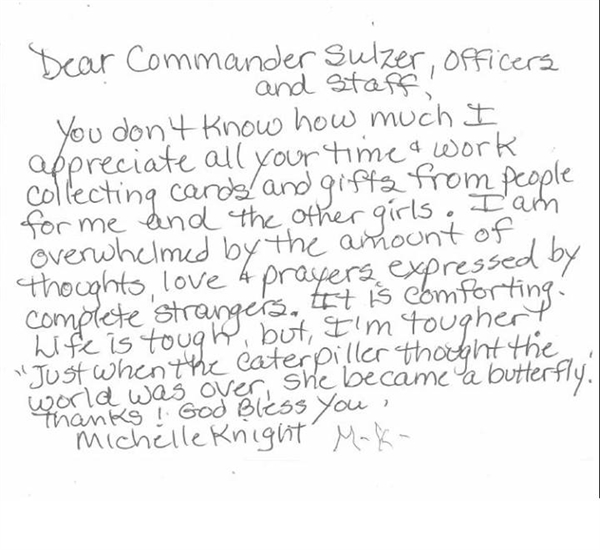 Dear Commander Sulzer, officers
and staff,
You don't know how much I
appreciate all your time & work
collecting cards and gifts from people
for me and the other girls. I am
overwhelmed by the amount of
thoughts, love & prayers expressed by
complete strangers. It is comforting.
Life is tough, but, I'm tougher!
"Just when the caterpiller thought the
world was over, she became a butterfly.
Thanks! God Bless You,
Michelle Knight M-K-